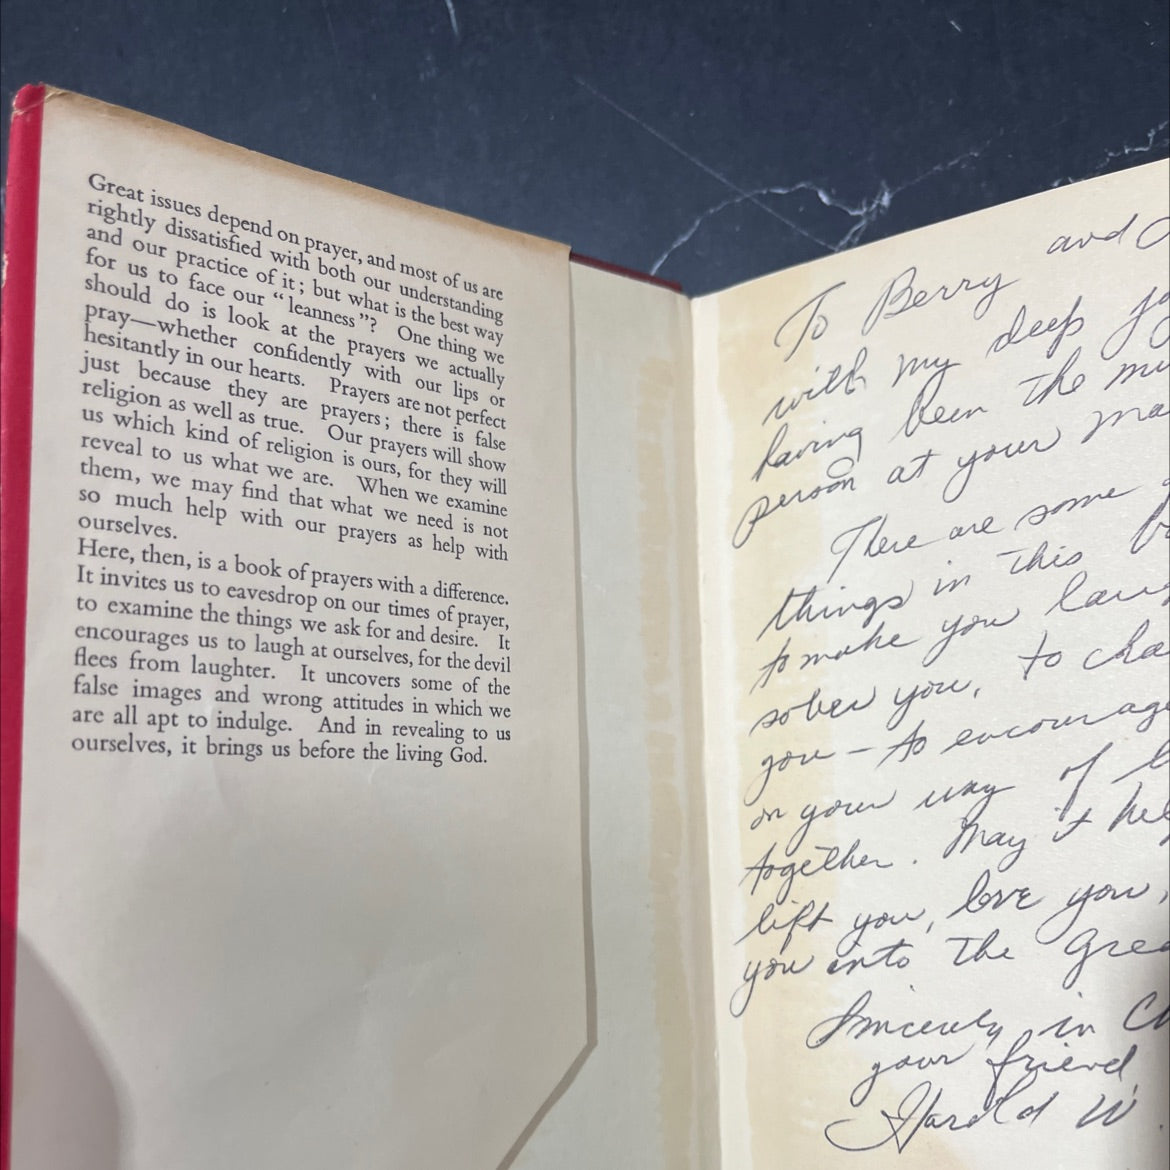 Great issues depend on prayer, and most of us are
rightly dissatisfied with both our understanding
and our practice of it; but what is the best way
for us to face our “leanness”? One thing we
should do is look at the prayers we actually
pray—whether confidently with our lips or
hesitantly in our hearts. Prayers are not perfect
just because they are prayers; there is false
religion as well as true. Our prayers will show
us which kind of religion is ours, for they will
reveal to us what we are. When we examine
them, we may find that what we need is not
so much help with our prayers as help with
ourselves.
Here, then, is a book of prayers with a difference.
It invites us to eavesdrop on our times of prayer,
to examine the things we ask for and desire. It
encourages us to laugh at ourselves, for the devil
flees from laughter. It uncovers some of the
false images and wrong attitudes in which we
are all apt to indulge. And in revealing to us
ourselves, it brings us before the living God.
To Berry and
with my deep
having been the
person at your
There are some
things in this
to make you
sober you, to
you – to encourage
on your way of
together. May it
lift you, love you,
you into the
Sincerely in
your friend
Harold W.